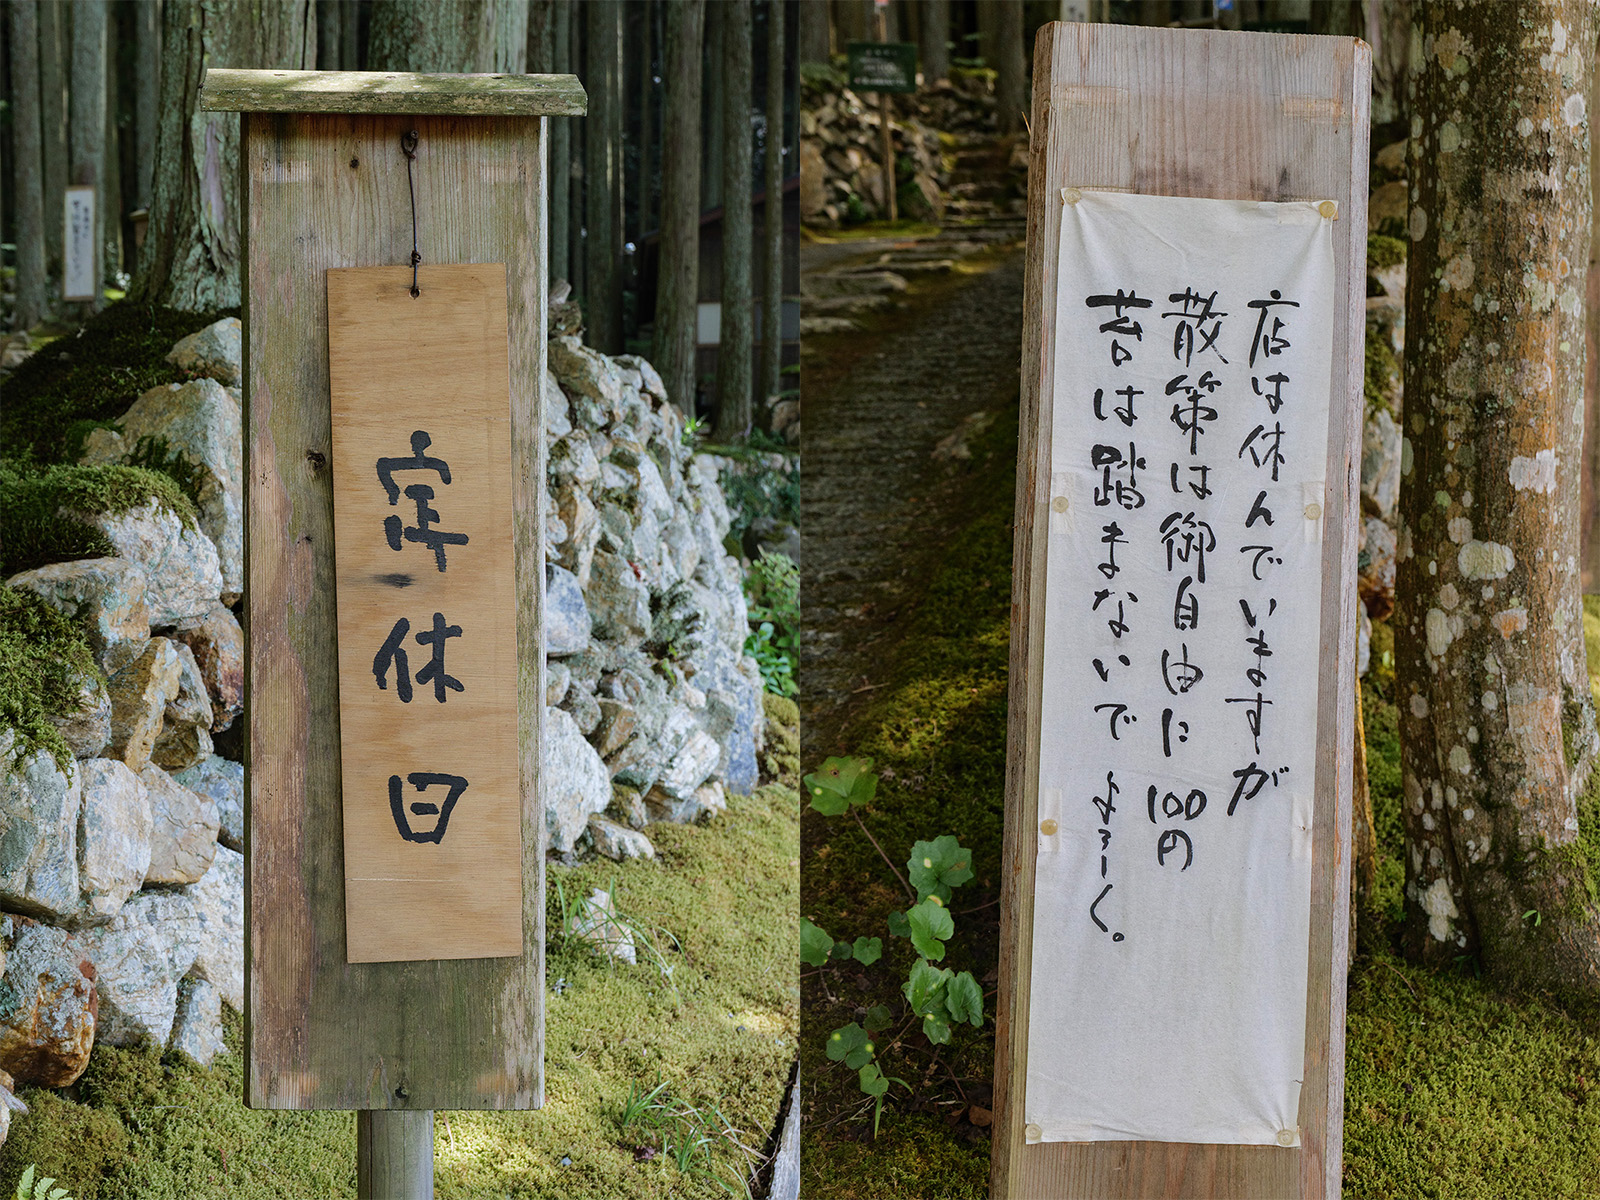 定休日
店は休んでいますが
散策は御自由に100円
苔は踏まないでよろしく。